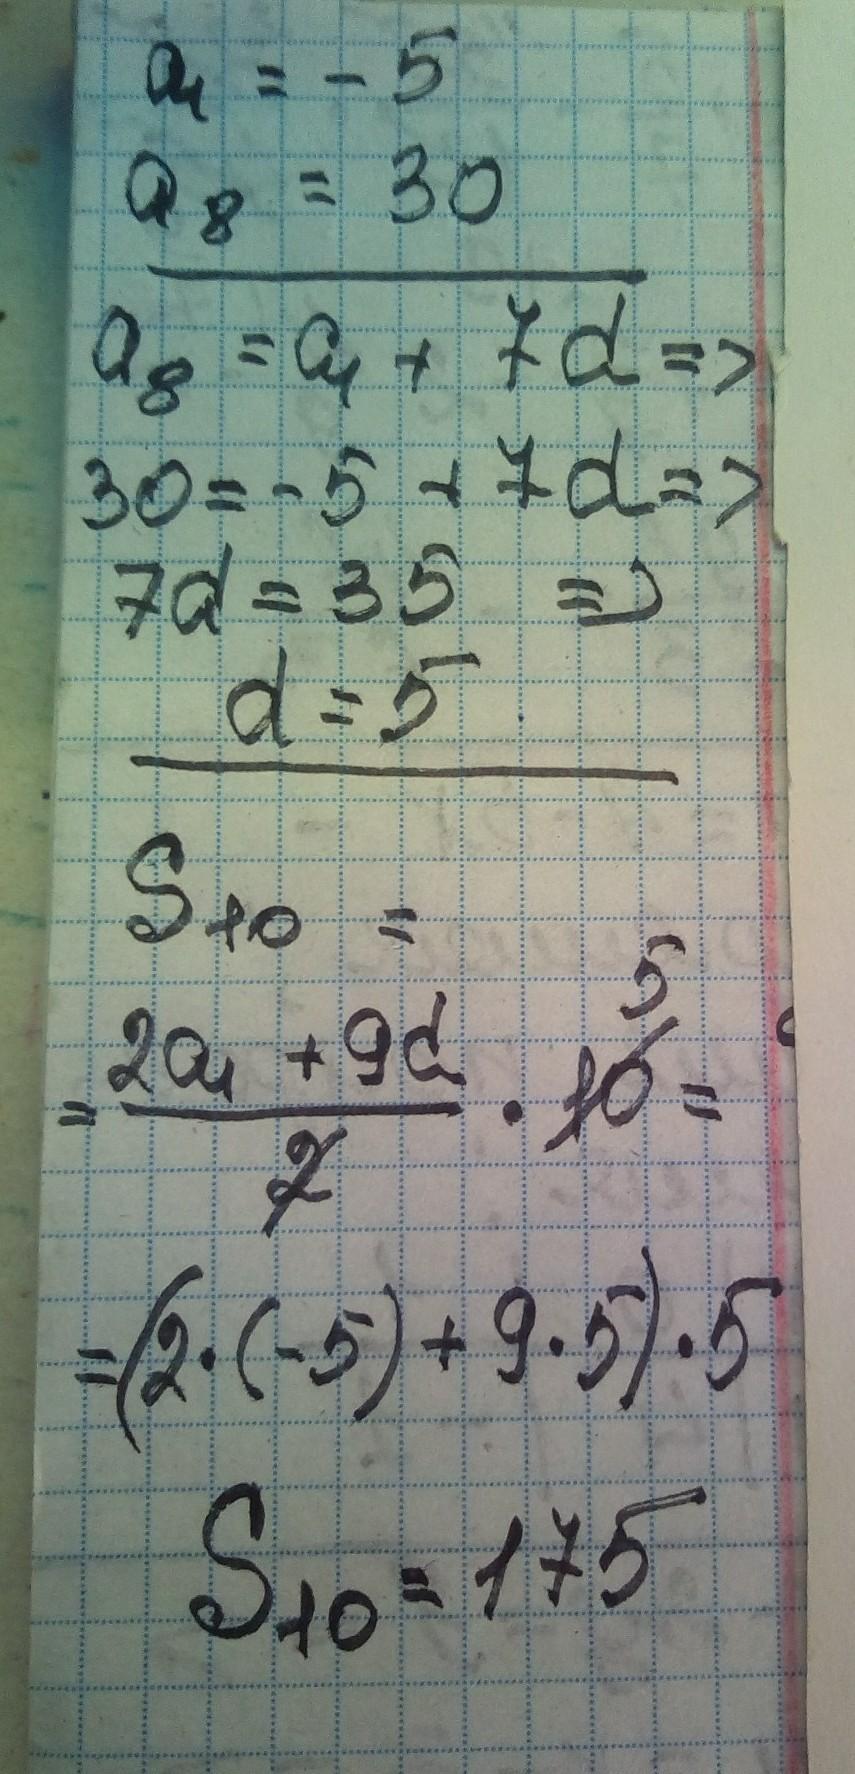 a₁ = - 5
a₈ = 30
a₈ = a₁ + 7d =>
30 = -5 + 7d =>
7d = 35 =>
d = 5
S₁₀ =
5
= 2a₁ + 9d / 2 · 10 =
= (2 · (-5) + 9 · 5) · 5
S₁₀ = 175